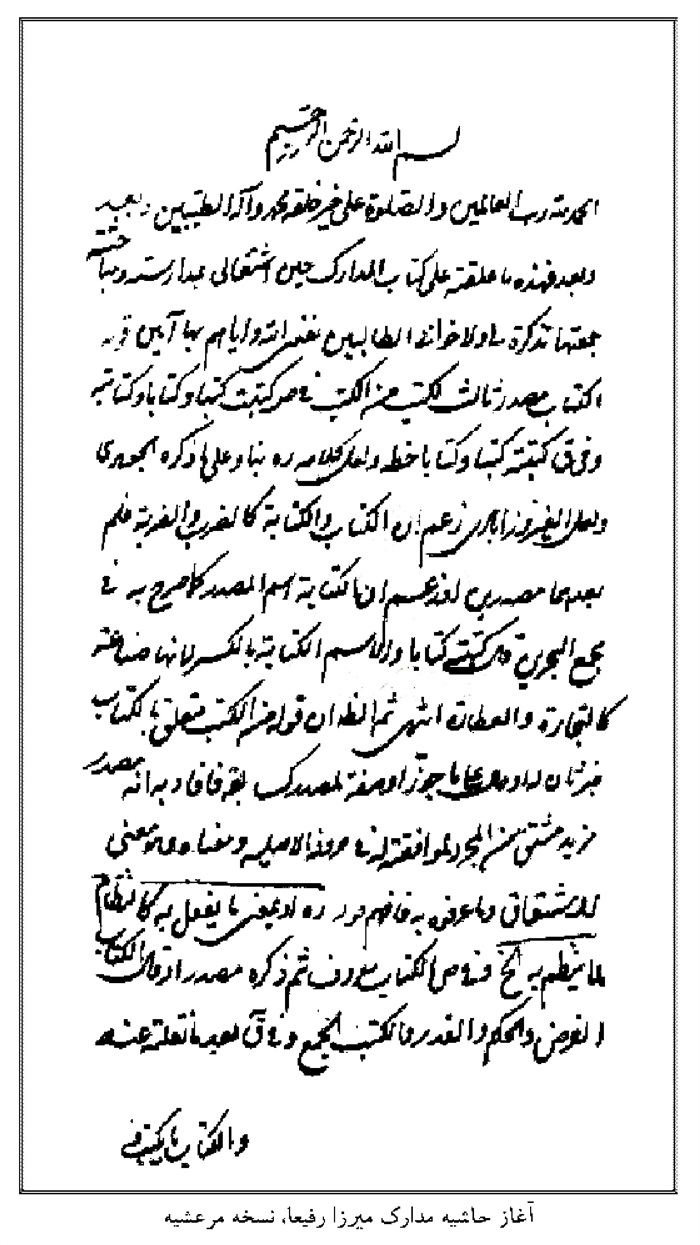 بسم الله الرحمن الرحیم
الحمد لله رب العالمین والصلوة علی خیر خلقه محمد وآله الطیبین وبعد
وبعد فهذه ما علقته علی کتاب المدارک حین اشتغالی بمدارسته ومباحثته
جمعتها تذکرة لی ولاخوانی الطالبین نفعنی الله وایاهم بها آمین قوله
الکتاب مصدر ثالث لکتب من الکتب فی ص کتبت کتبا وکتابا وکتابة
وفی ق کتبه کتبا وکتابا خطه ولعل کلامه ره بناء علی ما ذکره الجوهری
ولعل الفیروزآبادی زعم ان الکتاب والکتابة کالضرب والضربة فلم
یعدهما مصدرین او زعم ان الکتابة اسم المصدر کما صرح به فی
مجمع البحرین قال کتبت کتابا والاسم الکتابة بالکسر لانها صناعة
کالتجارة والعطارة انتهی ثم الظ ان قوله من الکتب متعلق بالکتاب
خبر ثان او صفة لمصدر فافاد به انه مصدر
مزید مشتق من المجرد لموافقته له فی حروفه الاصلیه ومعناه ولا معنی
للاشتقاق وما عرفوه به فافهم قوله ره او بمعنی ما یفعل به کالنظام
لما ینظم به الخ وفی ص الکتاب معروف ثم ذکره مصدرا وقال الکتاب
الفرض والحکم والقدر والکتب الجمع وفی ق بعد ما نقلته عنه
والکتاب ما یکتب فی
آغاز حاشیه مدارک میرزا رفیعا، نسخه مرعشیه